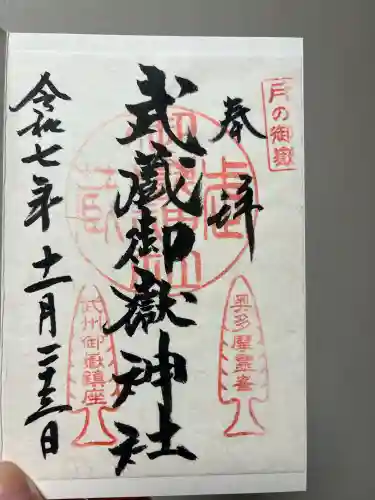 月の御嶽
奉拝
武蔵御嶽神社
令和七年十一月二十三日
奥多摩霊峯
武州御嶽鎮座